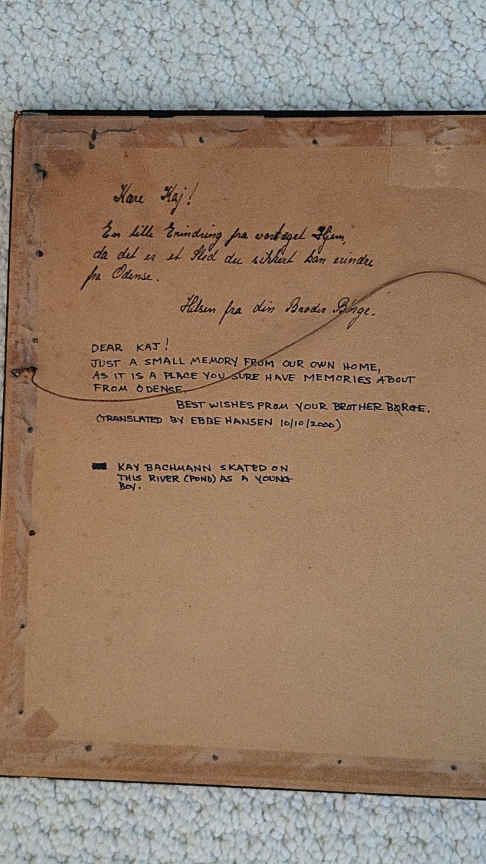 Kære Kaj!
En lille Erindring fra vort eget Hjem,
da det er et Sted du sikkert kan erindre
fra Odense.
Hilsen fra din Broder Børge.
DEAR KAJ!
JUST A SMALL MEMORY FROM OUR OWN HOME,
AS IT IS A PLACE YOU SURE HAVE MEMORIES ABOUT
FROM ODENSE.
BEST WISHES FROM YOUR BROTHER BØRGE.
(TRANSLATED BY EBBE HANSEN 10/10/2000)
KAY BACHMANN SKATED ON
THIS RIVER (POND) AS A YOUNG
BOY.